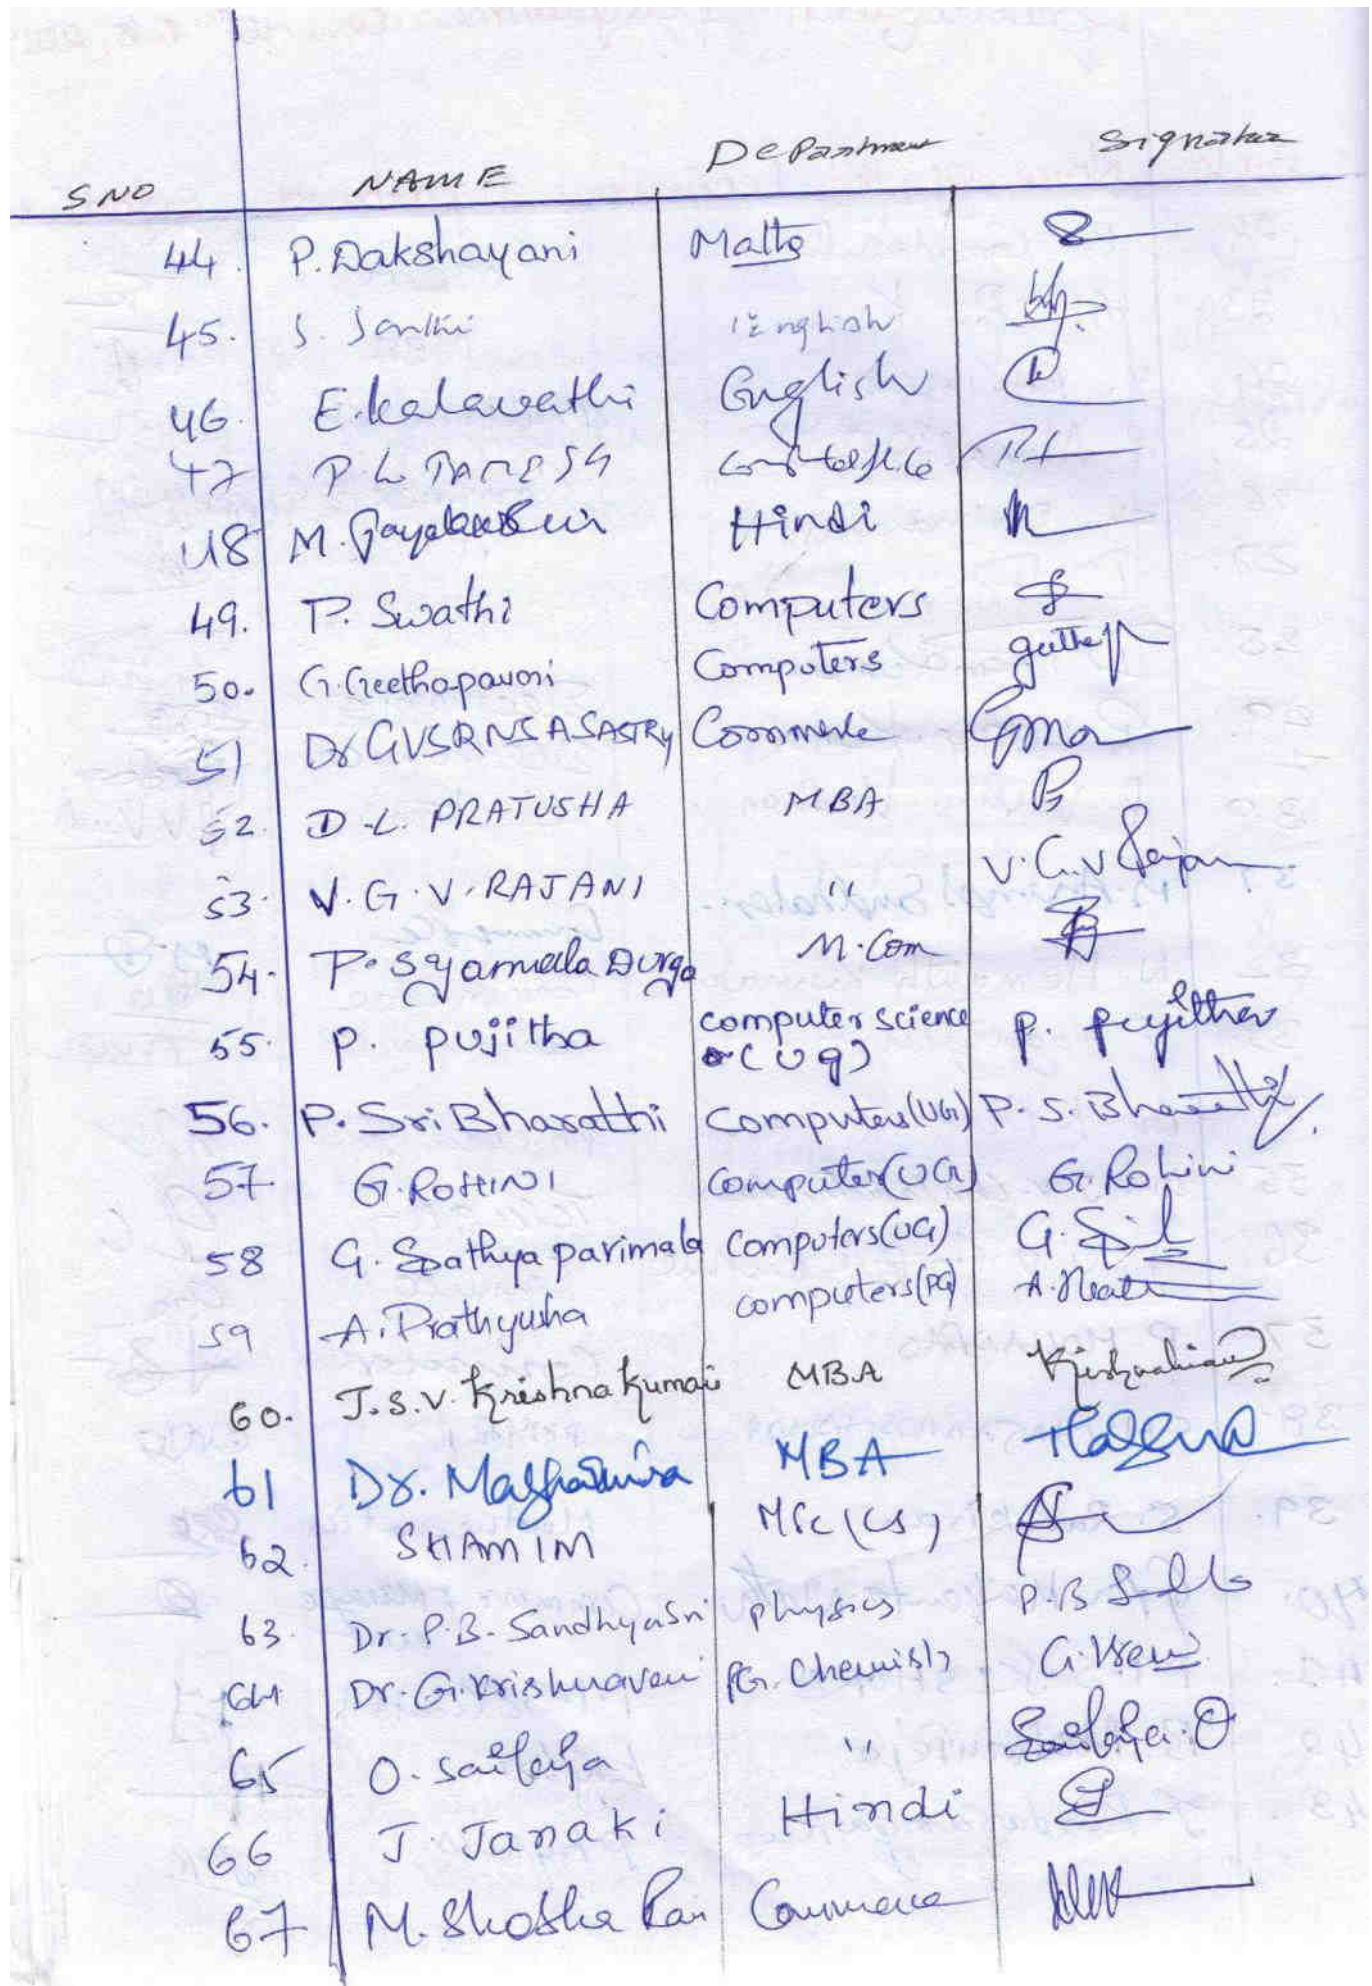 SNO NAME Department Signature
44. P. Dakshayani Maths
45. S. Santhi English
46. E. kalavathi English
47 P L
48 M. Hindi
49. P. Swathi Computers
50. G. Geethapavani Computers
51 Dr GVSRNSASASTRY Commerce
52. D.L. PRATUSHA MBA
53. V.G.V. RAJANI " V.G.V Rajani
54. P. Syamala Durga M.Com
55. P. Pujitha computer science P. Pujitha
(Ug)
56. P. Sri Bharathi Computers(UG) P.S. Bharathi
57. G. ROHINI Computer(UG) G. Rohini
58 G. Sathya parimala Computers(UG) G.
59 A. Prathyusha computers(PG) A.
60. J.S.V. Krishna Kumari MBA
61 Dr. MBA
62. SHAMIM MSc (CS)
63. Dr. P.B. Sandhyasri physics P.B
64 Dr. G. Krishnaveni PG. Chemistry G. Kveni
65 O. Sailaja " Sailaja. O
66 J. Janaki Hindi
67 M. Commerce